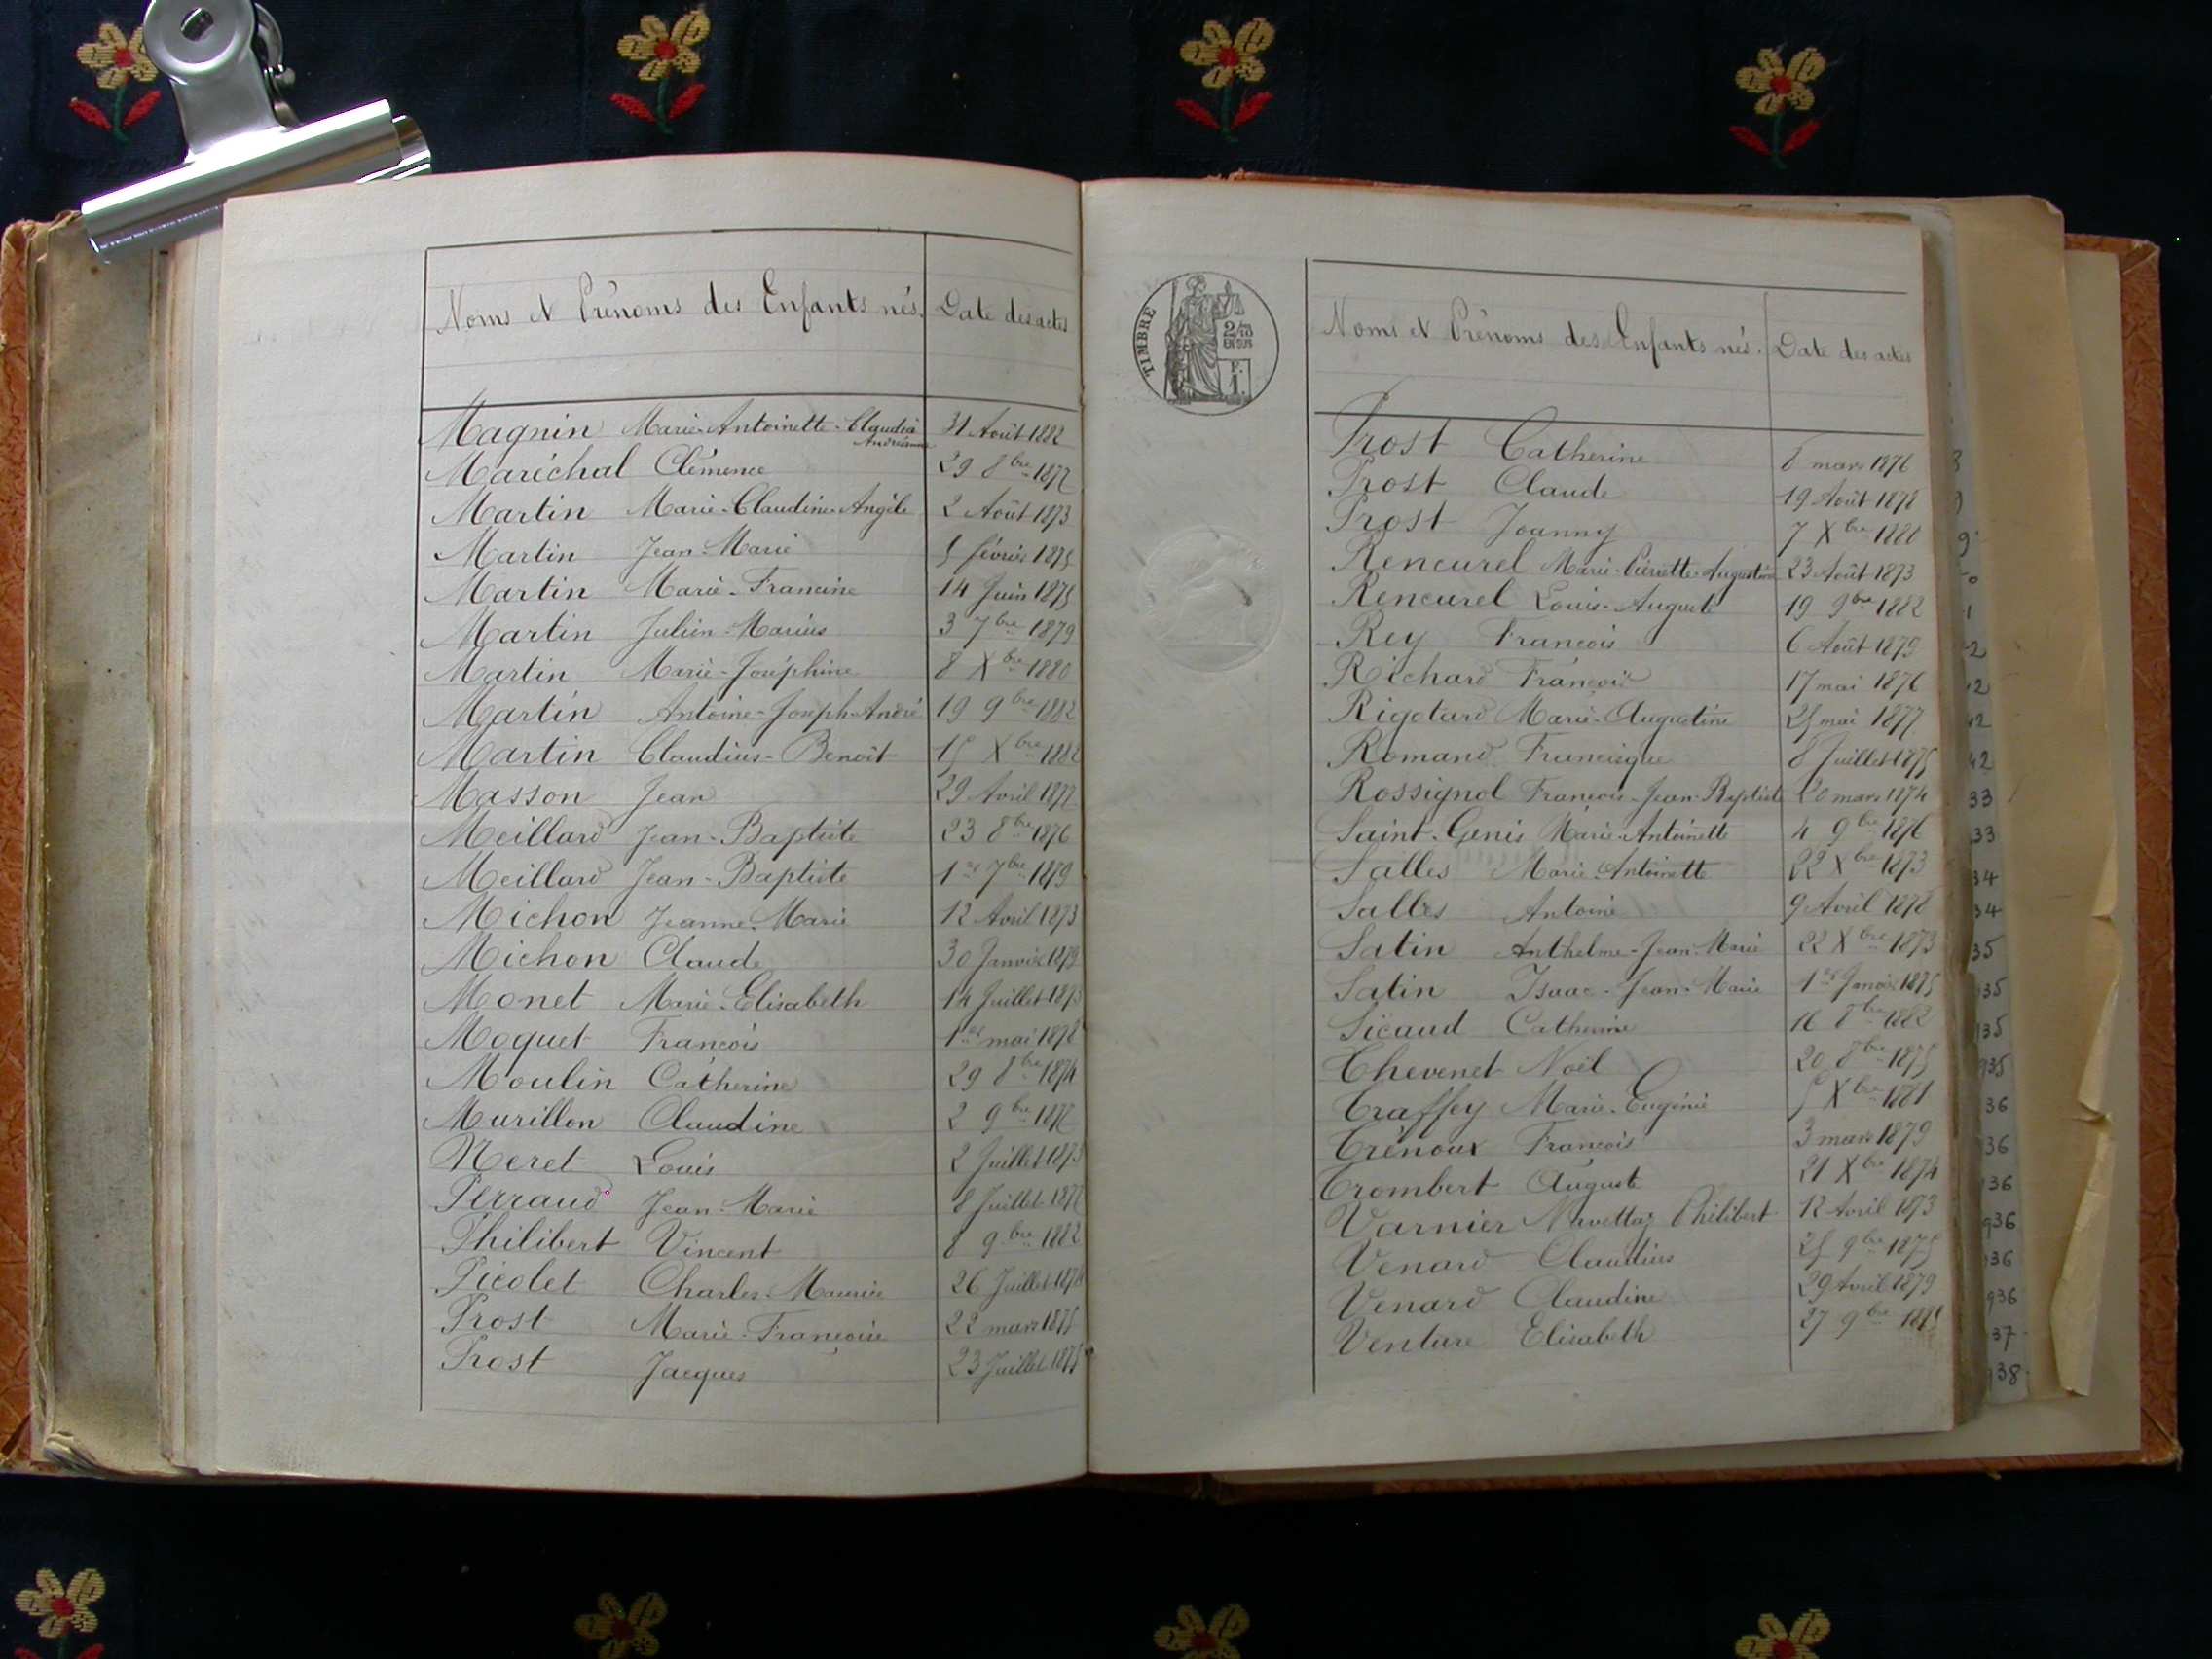 Noms et Prénoms des Enfants nés. Date des actes
Magnin Marie-Antoinette-Claudia 31 Août 1882
Maréchal Clémence 29 8bre 1877
Martin Marie-Claudine-Angèle 2 Août 1873
Martin Jean-Marie 5 février 1875
Martin Marie-Francine 14 Juin 1875
Martin Julien-Marius 3 7bre 1879
Martin Marie-Joséphine 8 Xbre 1880
Martin Antoine-Joseph-André 19 9bre 1882
Martin Claudius-Benoît 15 Xbre 1882
Masson Jean 29 Avril 1877
Meillard Jean-Baptiste 23 8bre 1876
Meillard Jean-Baptiste 1er 7bre 1879
Michon Jeanne-Marie 12 Avril 1873
Michon Claude 30 Janvier 1879
Monet Marie-Elisabeth 14 Juillet
Moquet François 1er mai 1878
Moulin Catherine 29 8bre 1874
Murillon Claudine 2 9bre
Neret Louis 2 Juillet
Perraud Jean-Marie 8 Juillet
Philibert Vincent 8 9bre 1882
Picolet Charles-Maurice 26 Juillet
Prost Marie-Françoise 22 mars 1875
Prost Jacques 23 Juillet
TIMBRE
2/10
EN SUS
F.
1.
Noms et Prénoms des Enfants nés. Date des actes
Prost Catherine 8 mars 1876
Prost Claude 19 Août 1878
Prost Joanny 7 Xbre 1880
Rencurel Marie-Pierrette-Augustine 23 Août 1873
Rencurel Louis-Auguste 19 9bre 1882
Rey François 6 Août 1879
Richard François 17 mai 1876
Rigotard Marie-Augustine 25 mai 1877
Romand Francisque 8 Juillet 1875
Rossignol François-Jean-Baptiste 20 mars 1874
Saint-Genis Marie-Antoinette 4 9bre 1876
Salles Marie-Antoinette 22 Xbre 1873
Salles Antoine 9 Avril 1878
Satin Anthelme-Jean-Marie 22 Xbre 1873
Satin Isaac-Jean-Marie 1er Janvier 1875
Sicaud Catherine 16 8bre 1882
Thevenet Noël 20 8bre 1875
Traffey Marie-Eugénie 5 Xbre 1881
Trénoux François 3 mars 1879
Trombert Auguste 21 Xbre 1874
Varnier Philibert 12 Avril 1873
Venard Claudius 25 9bre 1875
Venard Claudine 29 Avril 1879
Venture Elisabeth 27 9bre
33
33
34
34
35
35
35
935
36
36
36
936
36
936
37
938